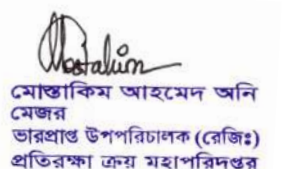 Mostakim
মোস্তাকিম আহমেদ অনি
মেজর
ভারপ্রাপ্ত উপপরিচালক (রেজিঃ)
প্রতিরক্ষা ক্রয় মহাপরিদপ্তর